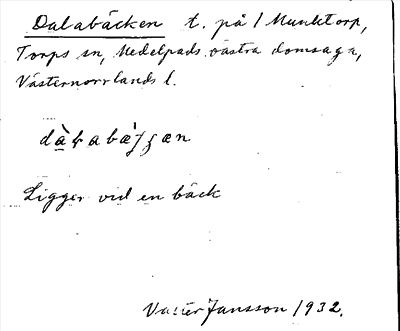 Dalabäcken t. på / Munktorp,
Torps sn, Medelpads västra domsaga,
Västernorrlands l.
Ligger vid en bäck
Valter Jansson 1932.